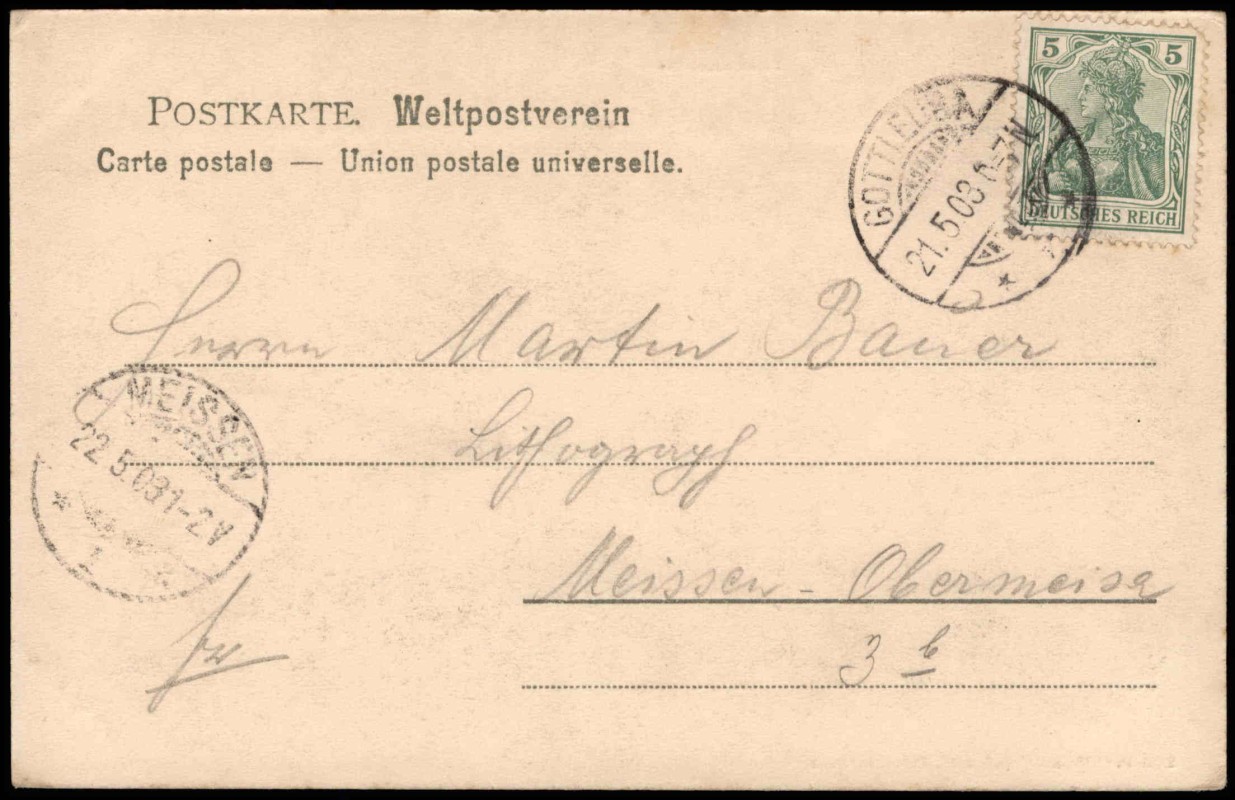 POSTKARTE. Weltpostverein
Carte postale — Union postale universelle.
5 5
DEUTSCHES REICH
GOTTLEUBA
21.5.03 6-7N
Herrn Martin Bauer
Lithograph
Meissen - Obermeisa
3 b
MEISSEN
22.5.03 1-2V